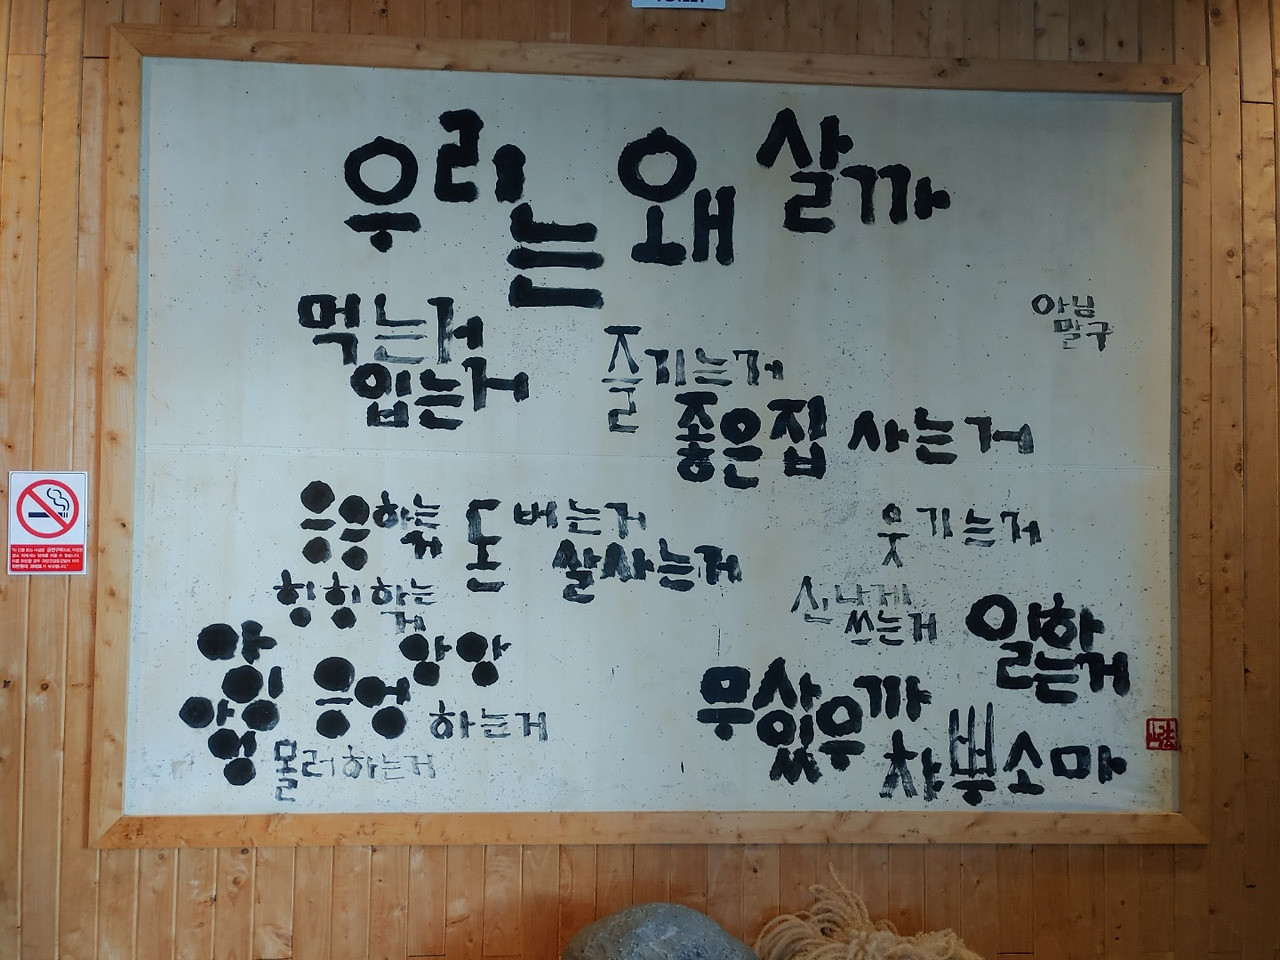 우리는 왜 살까
아님
말구
먹는거
입는거
즐기는거
좋은집 사는거
응응하는거
돈 버는거
잘사는거
웃기는거
힝힝하는거
신나게
쓰는거
일하는거
앙앙
응엉
하는거
몰러하는거
무삶있우까
차뿌소마